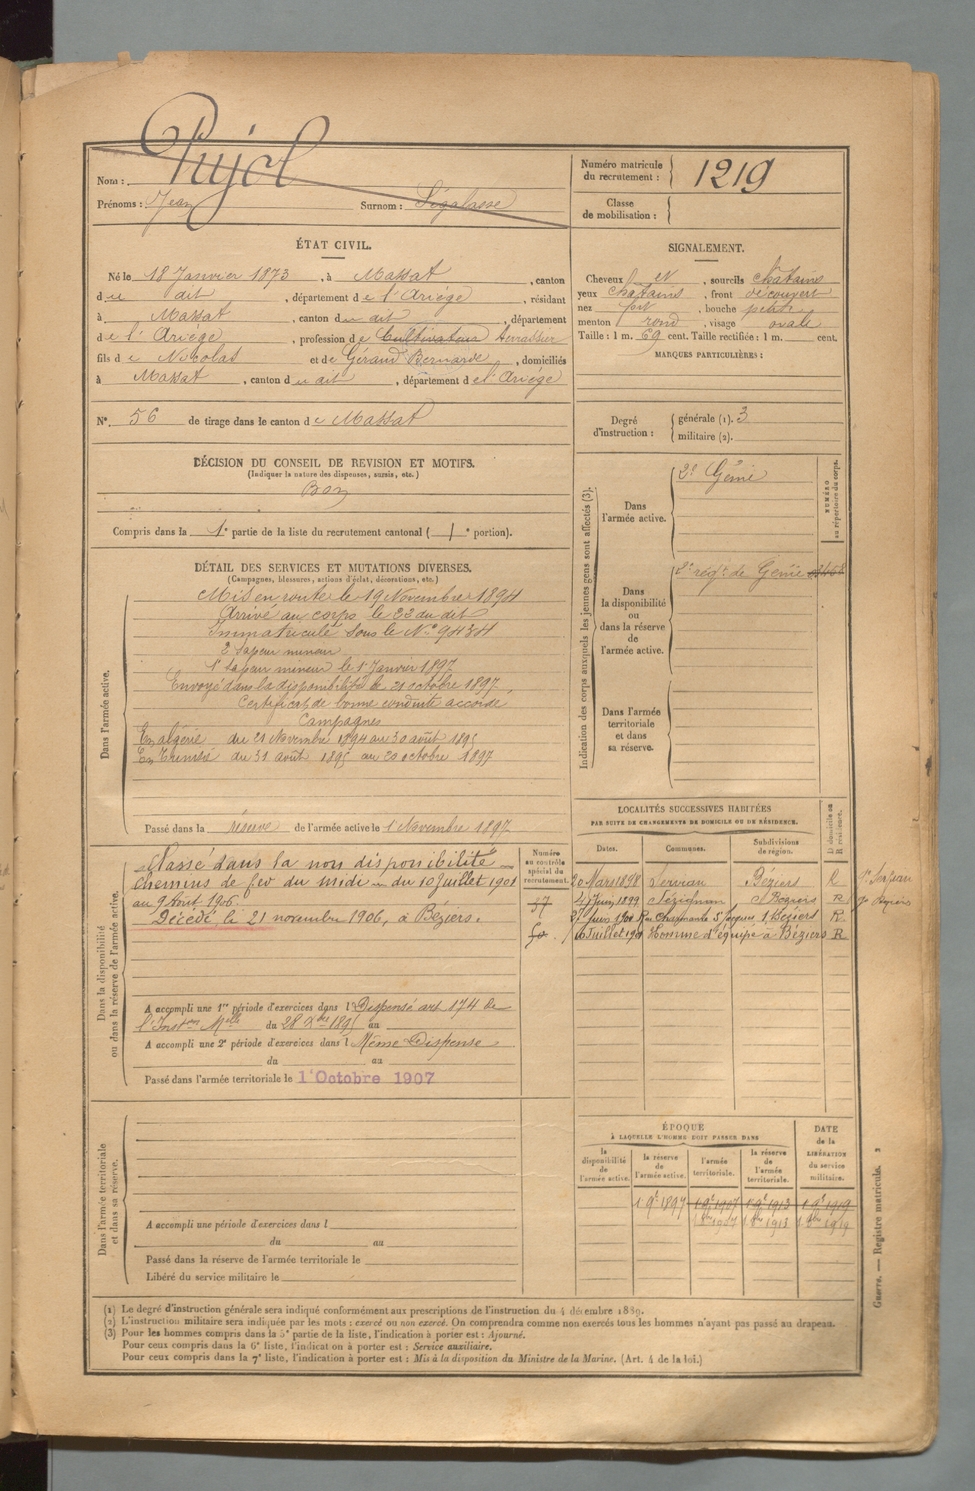 Nom : Pujol
Prénoms : Jean Surnom : Ségalasse
Numéro matricule du recrutement : 1219
Classe de mobilisation :
ÉTAT CIVIL.
Né le 18 Janvier 1873, à Massat, canton
du dit, département de l'Ariége, résidant
à Massat, canton du dit, département
de l'Ariége, profession de Cultivateur Terrassier
fils de Nicolas et de Géraud Bernarde, domiciliés
à Massat, canton du dit, département de l'Ariége
N° 56 de tirage dans le canton de Massat
DÉCISION DU CONSEIL DE REVISION ET MOTIFS.
(Indiquer la nature des dispenses, sursis, etc.)
Bon
Compris dans la 1e partie de la liste du recrutement cantonal (1e portion).
SIGNALEMENT.
Cheveux et, sourcils chatains
yeux chatains, front découvert
nez fort, bouche petite
menton rond, visage ovale
Taille : 1 m. 69 cent. Taille rectifiée : 1 m. cent.
MARQUES PARTICULIÈRES :
Degré d'instruction : générale (1). 3
militaire (2).
DÉTAIL DES SERVICES ET MUTATIONS DIVERSES.
(Campagnes, blessures, actions d'éclat, décorations, etc.)
Dans l'armée active.
Mis en route le 19 Novembre 1894
Arrivé au corps le 23 du dit
Immatriculé sous le N° 9434
2 Sapeur mineur
1r Sapeur mineur le 1r Janvier 1897
Envoyé dans la disponibilité le 21 octobre 1897
Certificat de bonne conduite accordé
Campagnes
En algérie du 21 Novembre 1894 au 30 août 1895
En Tunisie du 31 août 1895 au 20 octobre 1897
Passé dans la réserve de l'armée active le 1 Novembre 1897
Indication des corps auxquels les jeunes gens sont affectés (3).
NUMÉRO au répertoire du corps.
Dans l'armée active. 2e Génie
Dans la disponibilité ou dans la réserve de l'armée active. 2e régt de Génie
Dans l'armée territoriale et dans sa réserve.
Dans la disponibilité ou dans la réserve de l'armée active.
Passé dans la non disponibilité
chemins de fer du midi du 10 Juillet 1901
au 9 Aout 1906.
Décédé le 21 novembre 1906, à Béziers.
A accompli une 1re période d'exercices dans l Dispensé art 174 de
l'Inston Melle du 28 Xbre 1895 au
A accompli une 2e période d'exercices dans l Même Dispense
du au
Passé dans l'armée territoriale le 1er Octobre 1907
Numéro au contrôle spécial du recrutement.
LOCALITÉS SUCCESSIVES HABITÉES
PAR SUITE DE CHANGEMENTS DE DOMICILE OU DE RÉSIDENCE.
Dates. Communes. Subdivisions de région. D domicile ou R résidence.
20 Mars 1898 Servian Béziers R
4 Juin 1899 Lézignan Béziers R
27 Juin 1900 Rue Charmante St Jacques 1, Béziers R
10 Juillet 1901 Homme d'équipe à Béziers R
Dans l'armée territoriale et dans sa réserve.
A accompli une période d'exercices dans l
du au
Passé dans la réserve de l'armée territoriale le
Libéré du service militaire le
ÉPOQUE
À LAQUELLE L'HOMME DOIT PASSER DANS
la disponibilité de l'armée active. la réserve de l'armée active. l'armée territoriale. la réserve de l'armée territoriale. DATE de la LIBÉRATION du service militaire.
1 9e 1897 1 9e 1907 1 9e 1913 1 9e 1919
1 8bre 1907 1 8bre 1913 1 8bre 1919
Guerre. — Registre matricule. 2
(1) Le degré d'instruction générale sera indiqué conformément aux prescriptions de l'instruction du 4 décembre 1889.
(2) L'instruction militaire sera indiquée par les mots : exercé ou non exercé. On comprendra comme non exercés tous les hommes n'ayant pas passé au drapeau.
(3) Pour les hommes compris dans la 5e partie de la liste, l'indication à porter est : Ajourné.
Pour ceux compris dans la 6e liste, l'indication à porter est : Service auxiliaire.
Pour ceux compris dans la 7e liste, l'indication à porter est : Mis à la disposition du Ministre de la Marine. (Art. 4 de la loi.)